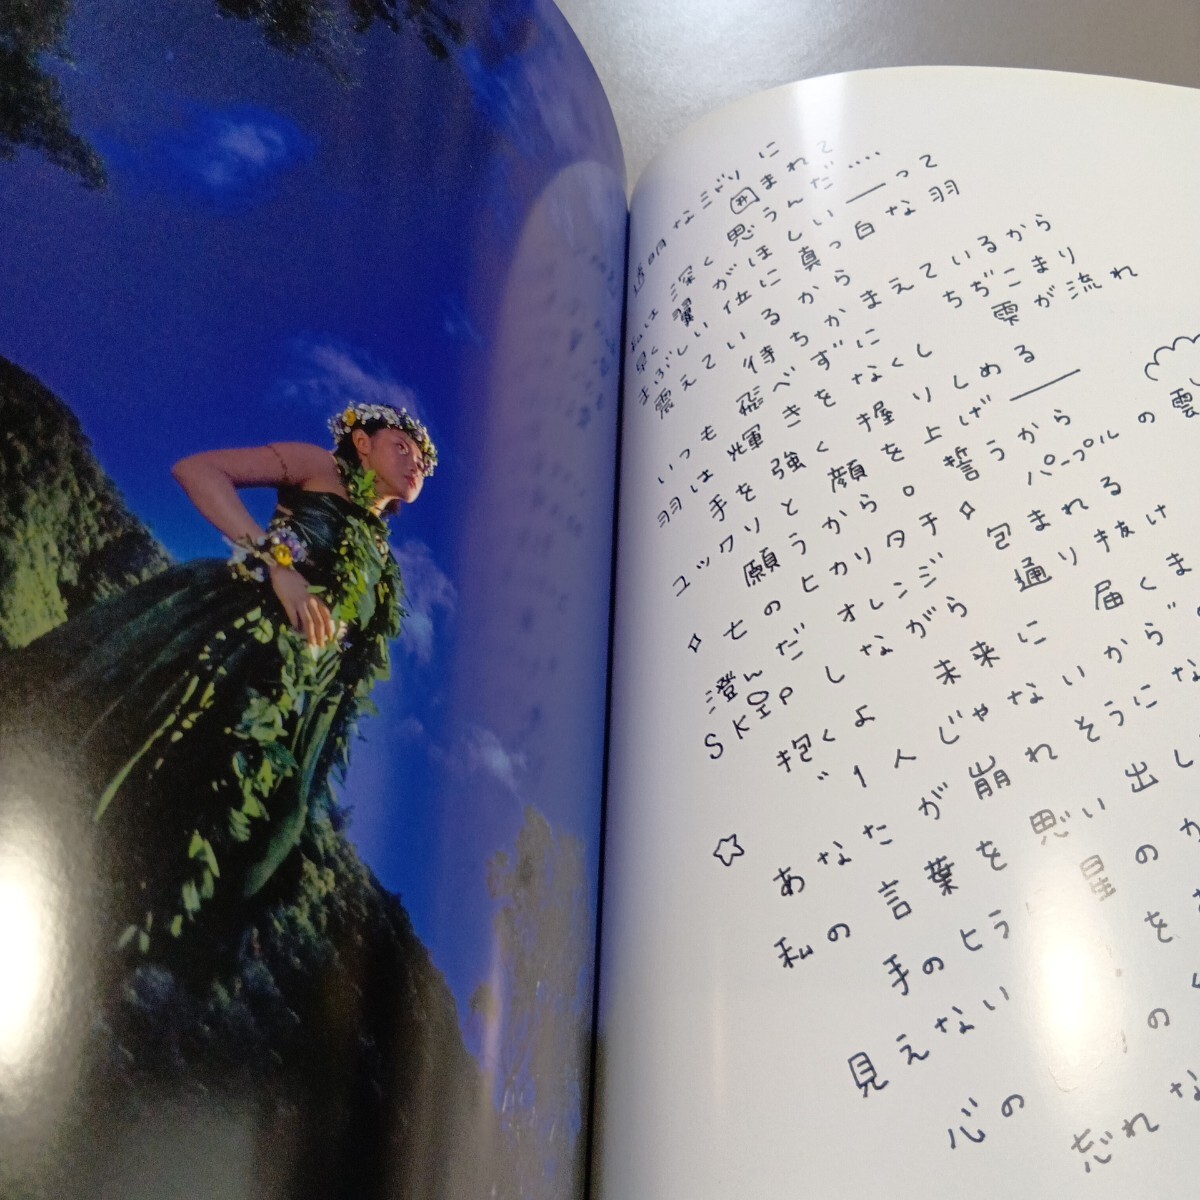 透明なミドリに囲まれて
私は深く思うんだ‥‥
早く翼がほしい――って
まぶしい位に真っ白な羽
震えているから
いつも待ちかまえているから
羽は飛べずにちぢこまり
輝きをなくし雲が流れ
手を強く握りしめる
ユックリと顔を上げ――
願うから。誓うから
七のヒカリタチ パープルの雲
澄んだオレンジ包まれる
SKIPしながら通り抜け
抱くよ未来に届くま
〝1人じゃないから〟
☆
あなたが崩れそうにな
私の言葉を思い出し
手のヒラ星のか
見えない を
心の の
忘れな